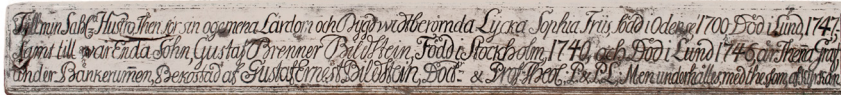 Till min Sahl: Hustro, Then för sin ogemena Lärdom och Dygd widtberömda Lycka Sophia Friis, född i Odense 1700, Död i Lund, 1747,
Samt till wår Enda Sohn, Gustaf Brenner Bildstein, Född i Stockholm, 1740, och Död i Lund 1746, är Thena Graf,
under Bänkerummen, Bekostad af Gustaf Ernest Bildstein, Doct: & Prof: Theol. P. & P. L. Men underhålles med the som af Kyrkan